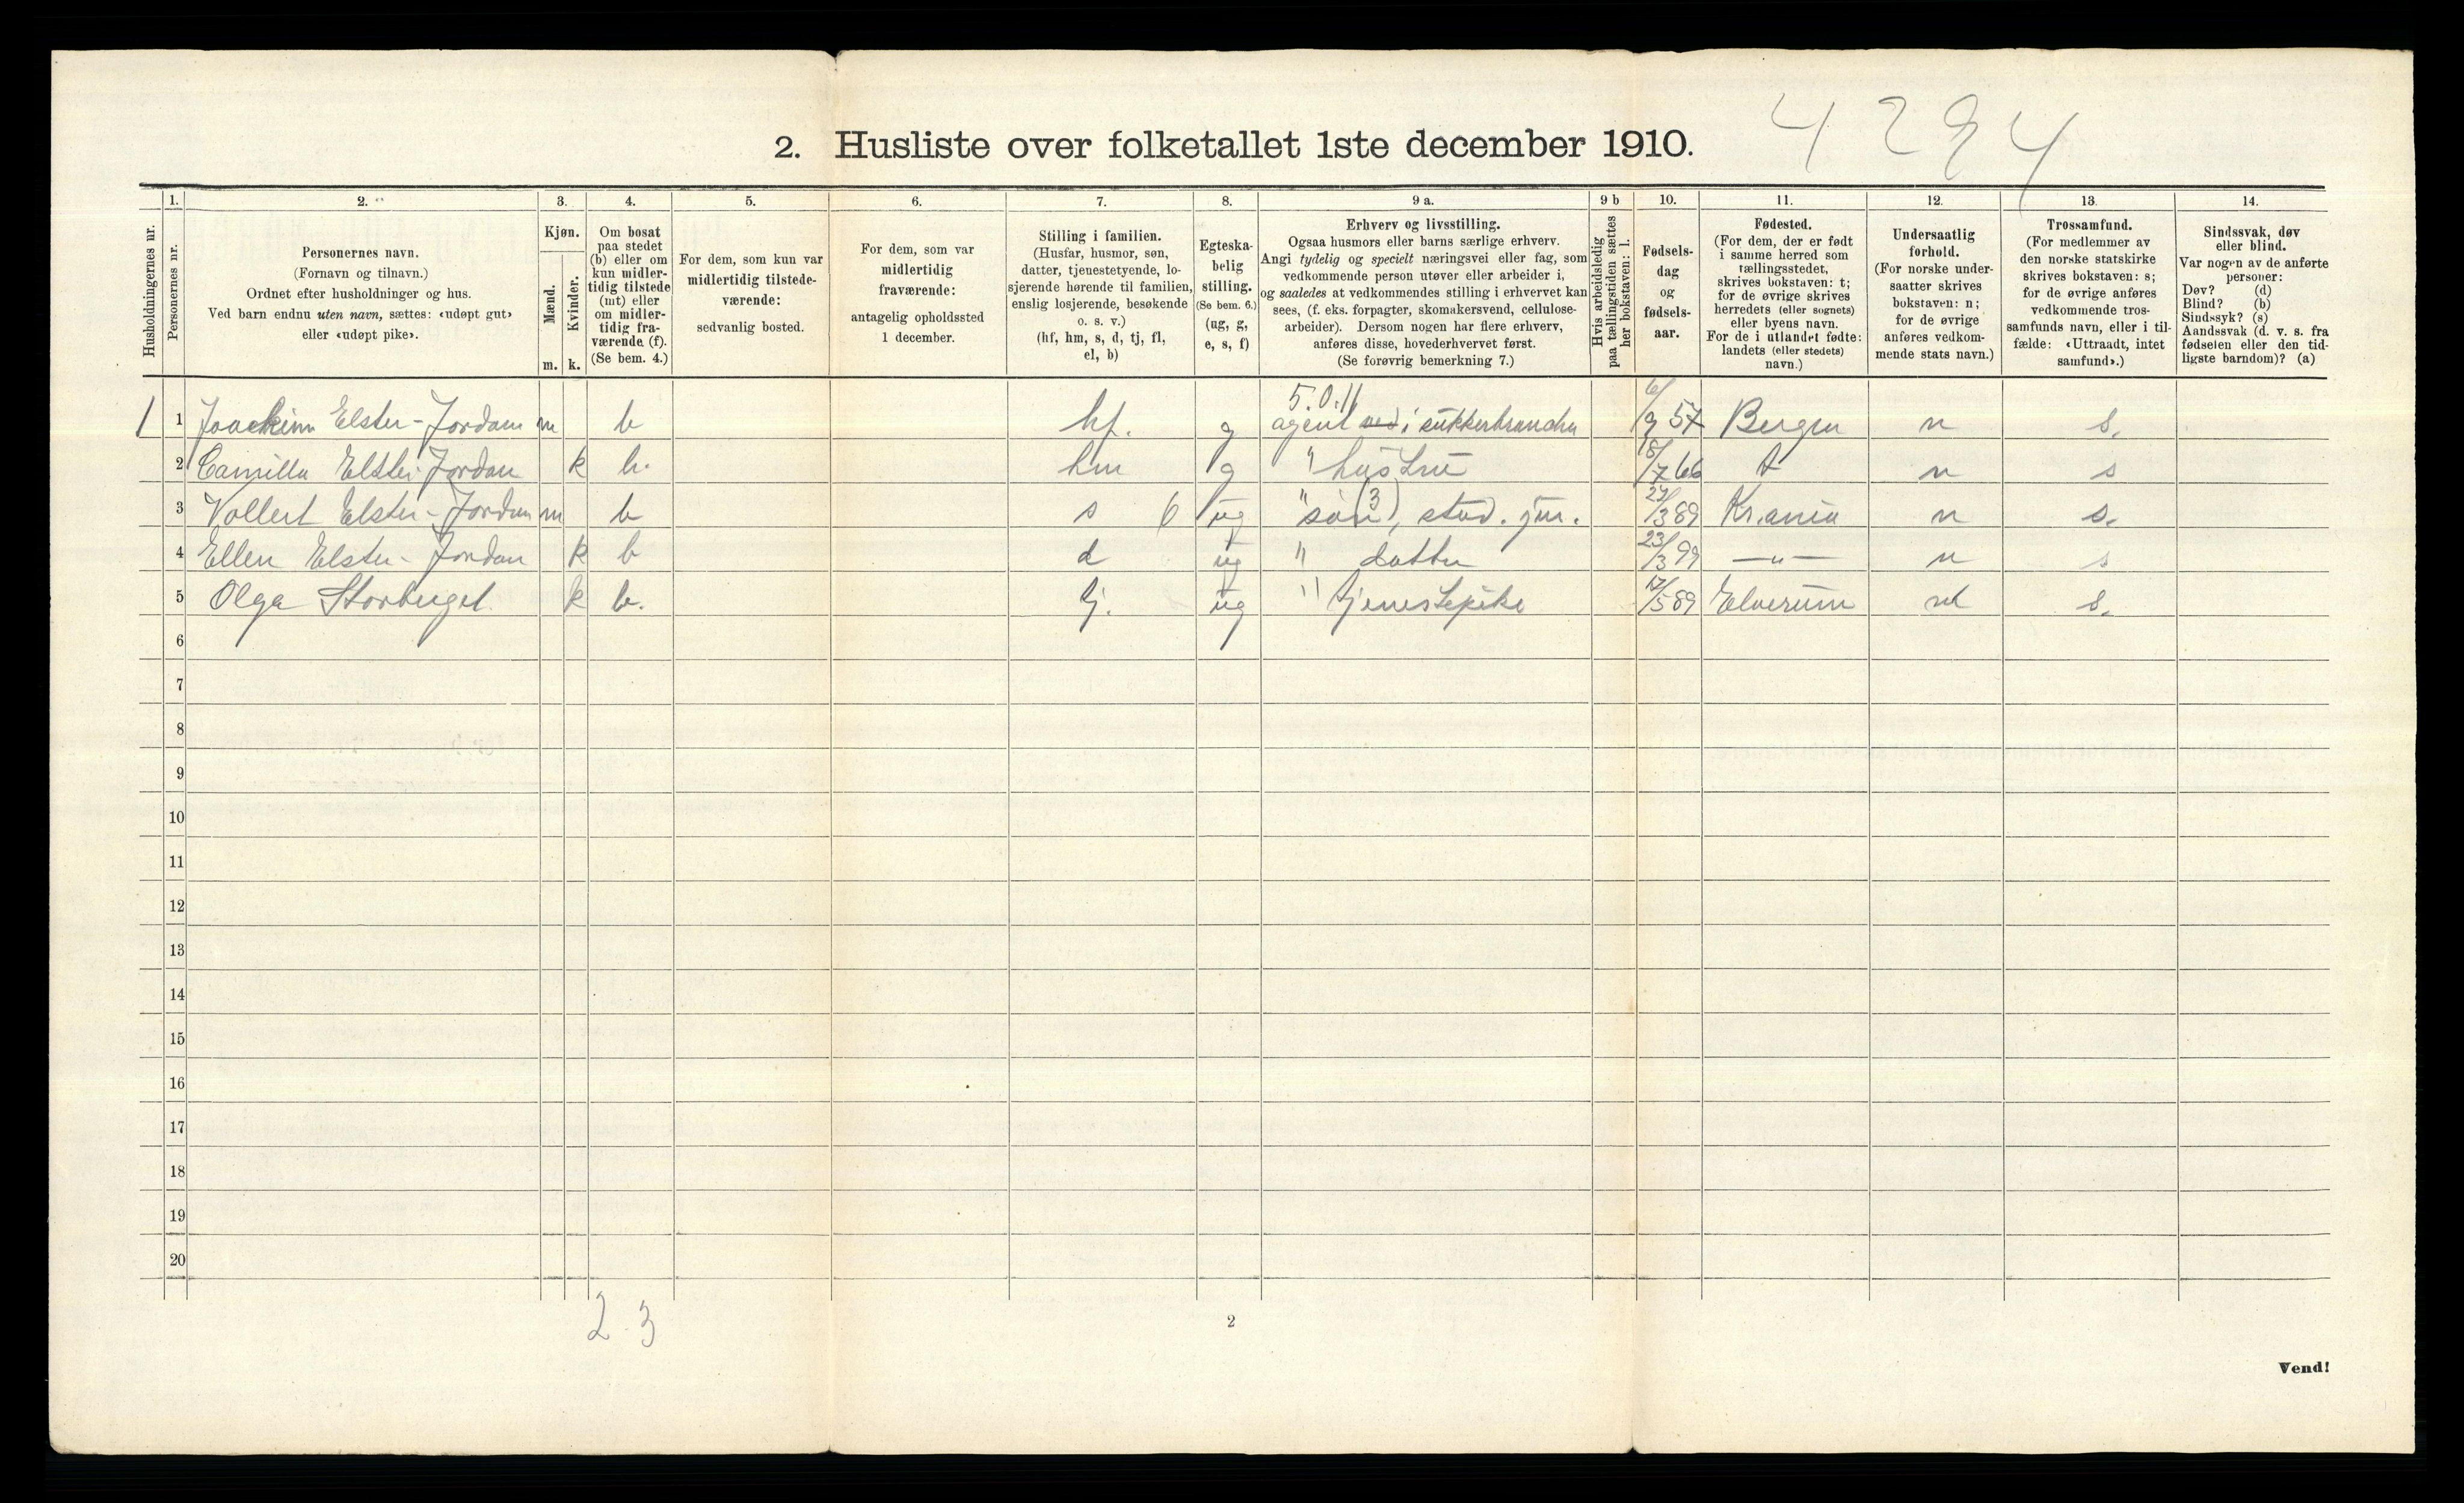 4294
2. Husliste over folketallet 1ste december 1910.
Husholdningernes nr.
1.
Personernes nr.
2.
Personernes navn.
(Fornavn og tilnavn.)
Ordnet efter husholdninger og hus.
Ved barn endnu uten navn, sættes: «udøpt gut»
eller «udøpt pike».
3.
Kjøn.
Mænd.
Kvinder.
m. k.
4.
Om bosat
paa stedet
(b) eller om
kun midler-
tidig tilstede
(mt) eller
om midler-
tidig fra-
værende (f).
(Se bem. 4.)
5.
For dem, som kun var
midlertidig tilstede-
værende:
sedvanlig bosted.
6.
For dem, som var
midlertidig
fraværende:
antagelig opholdssted
1 december.
7.
Stilling i familien.
(Husfar, husmor, søn,
datter, tjenestetyende, lo-
sjerende hørende til familien,
enslig losjerende, besøkende
o. s. v.)
(hf, hm, s, d, tj, fl,
el, b)
8.
Egteska-
belig
stilling.
(Se bem. 6.)
(ug, g,
e, s, f)
9 a.
Erhverv og livsstilling.
Ogsaa husmors eller barns særlige erhverv.
Angi tydelig og specielt næringsvei eller fag, som
vedkommende person utøver eller arbeider i,
og saaledes at vedkommendes stilling i erhvervet kan
sees, (f. eks. forpagter, skomakersvend, cellulose-
arbeider). Dersom nogen har flere erhverv,
anføres disse, hovederhvervet først.
(Se forøvrig bemerkning 7.)
9 b
Hvis arbeidsledig
paa tællingstiden sættes
her bokstaven: l.
10.
Fødsels-
dag
og
fødsels-
aar.
11.
Fødested.
(For dem, der er født
i samme herred som
tællingsstedet,
skrives bokstaven: t;
for de øvrige skrives
herredets (eller sognets)
eller byens navn.
For de i utlandet fødte:
landets (eller stedets)
navn.)
12.
Undersaatlig
forhold.
(For norske under-
saatter skrives
bokstaven: n;
for de øvrige
anføres vedkom-
mende stats navn.)
13.
Trossamfund.
(For medlemmer av
den norske statskirke
skrives bokstaven: s;
for de øvrige anføres
vedkommende tros-
samfunds navn, eller i til-
fælde: «Uttraadt, intet
samfund».)
14.
Sindssvak, døv
eller blind.
Var nogen av de anførte
personer:
Døv? (d)
Blind? (b)
Sindssyk? (s)
Aandssvak (d. v. s. fra
fødselen eller den tid-
ligste barndom)? (a)
5.0.11
1 1 Joachim Elster-Jordan m b hf. g agent ved i sukkerbranchen 6/9 57 Bergen n s.
2 Camilla Elster-Jordan k b. hm g " hustru 18/7 66 t n s
3 Vollert Elster-Jordan m b s 6 ug " søn (3), stud. jur. 27/3 89 Kr.ania n s.
4 Ellen Elster-Jordan k b d ug " datter 23/3 99 —"— n s
5 Olga Storberget k b. tj. ug " tjenestepike 17/5 89 Elverum n s.
6
7
8
9
10
11
12
13
14
15
16
17
18
19
20
2 3
2
Vend!